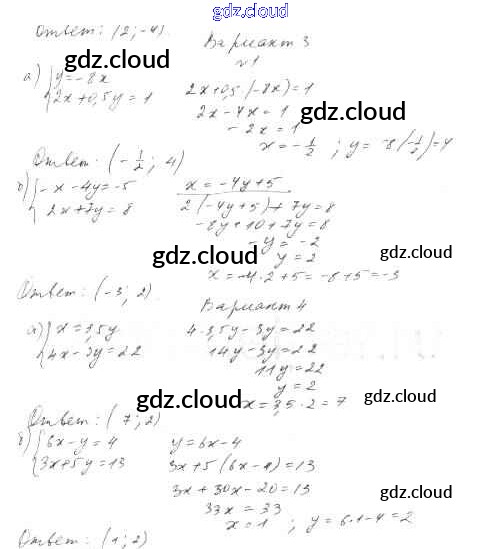 gdz.cloud
Ответ: (2; -4).
gdz.cloud
Вариант 3
№1
а) {y = -8x
2x + 0,5y = 1
2x + 0,5·(-8x) = 1
2x - 4x = 1
-2x = 1
x = -1/2 ; y = -8(-1/2) = 4
gdz.cloud
gdz.cloud
gdz.cloud
Ответ: (-1/2; 4)
б) {-x - 4y = -5
2x + 7y = 8
x = -4y + 5
2(-4y + 5) + 7y = 8
-8y + 10 + 7y = 8
-y = -2
y = 2
x = -4·2 + 5 = -8 + 5 = -3
gdz.cloud
gdz.cloud
Ответ: (-3; 2).
Вариант 4
а) {x = 3,5y
4x - 3y = 22
4·3,5y - 3y = 22
14y - 3y = 22
11y = 22
y = 2
x = 3,5·2 = 7
gdz.cloud
gdz.cloud
gdz.cloud
Ответ: (7; 2)
б) {6x - y = 4
3x + 5y = 13
y = 6x - 4
3x + 5(6x - 4) = 13
3x + 30x - 20 = 13
33x = 33
x = 1 ; y = 6·1 - 4 = 2
gdz.cloud
gdz.cloud
Ответ: (1; 2)